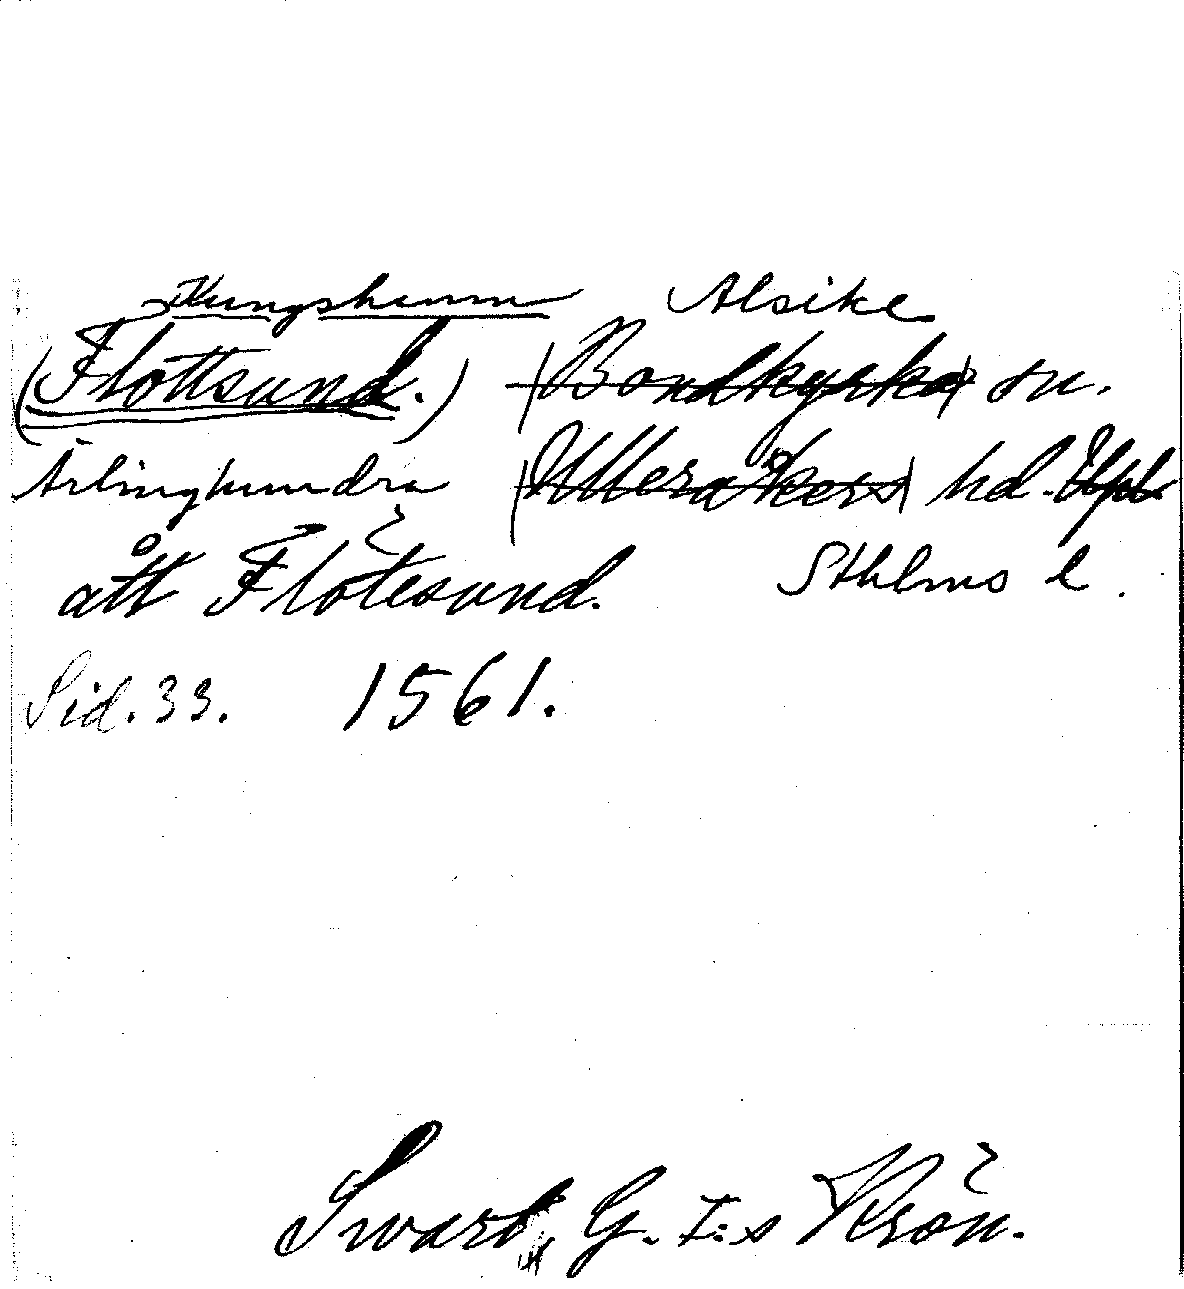 Kungshamn Alsike
(Flottsund.) (Bondkyrka) sn.
Ärlinghundra (Ulleråkers) hd. Upl.
att Flötesund. Sthlms l.
Sid. 33. 1561.
Swart, G. I:s Krön.